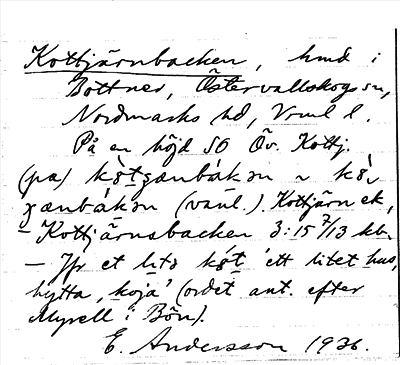 Kottjärnbacken, hmd i
Bottner, Östervallskogs sn,
Nordmarks hd, Vrml l.
På en höjd SO Öv. Kottj.
(pæ)
(vanl.). Kottjärn ek,
– Kottjärnsbacken 3:15 7/13 kb.
– Jfr et 'ett litet hus,
hytta, koja' (ordet ant. efter
Myrell i Bön).
E. Andersson 1926.